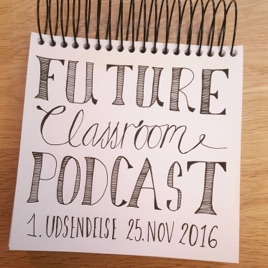 FUTURE
Classroom
PODCAST
1. UDSENDELSE 25. NOV 2016